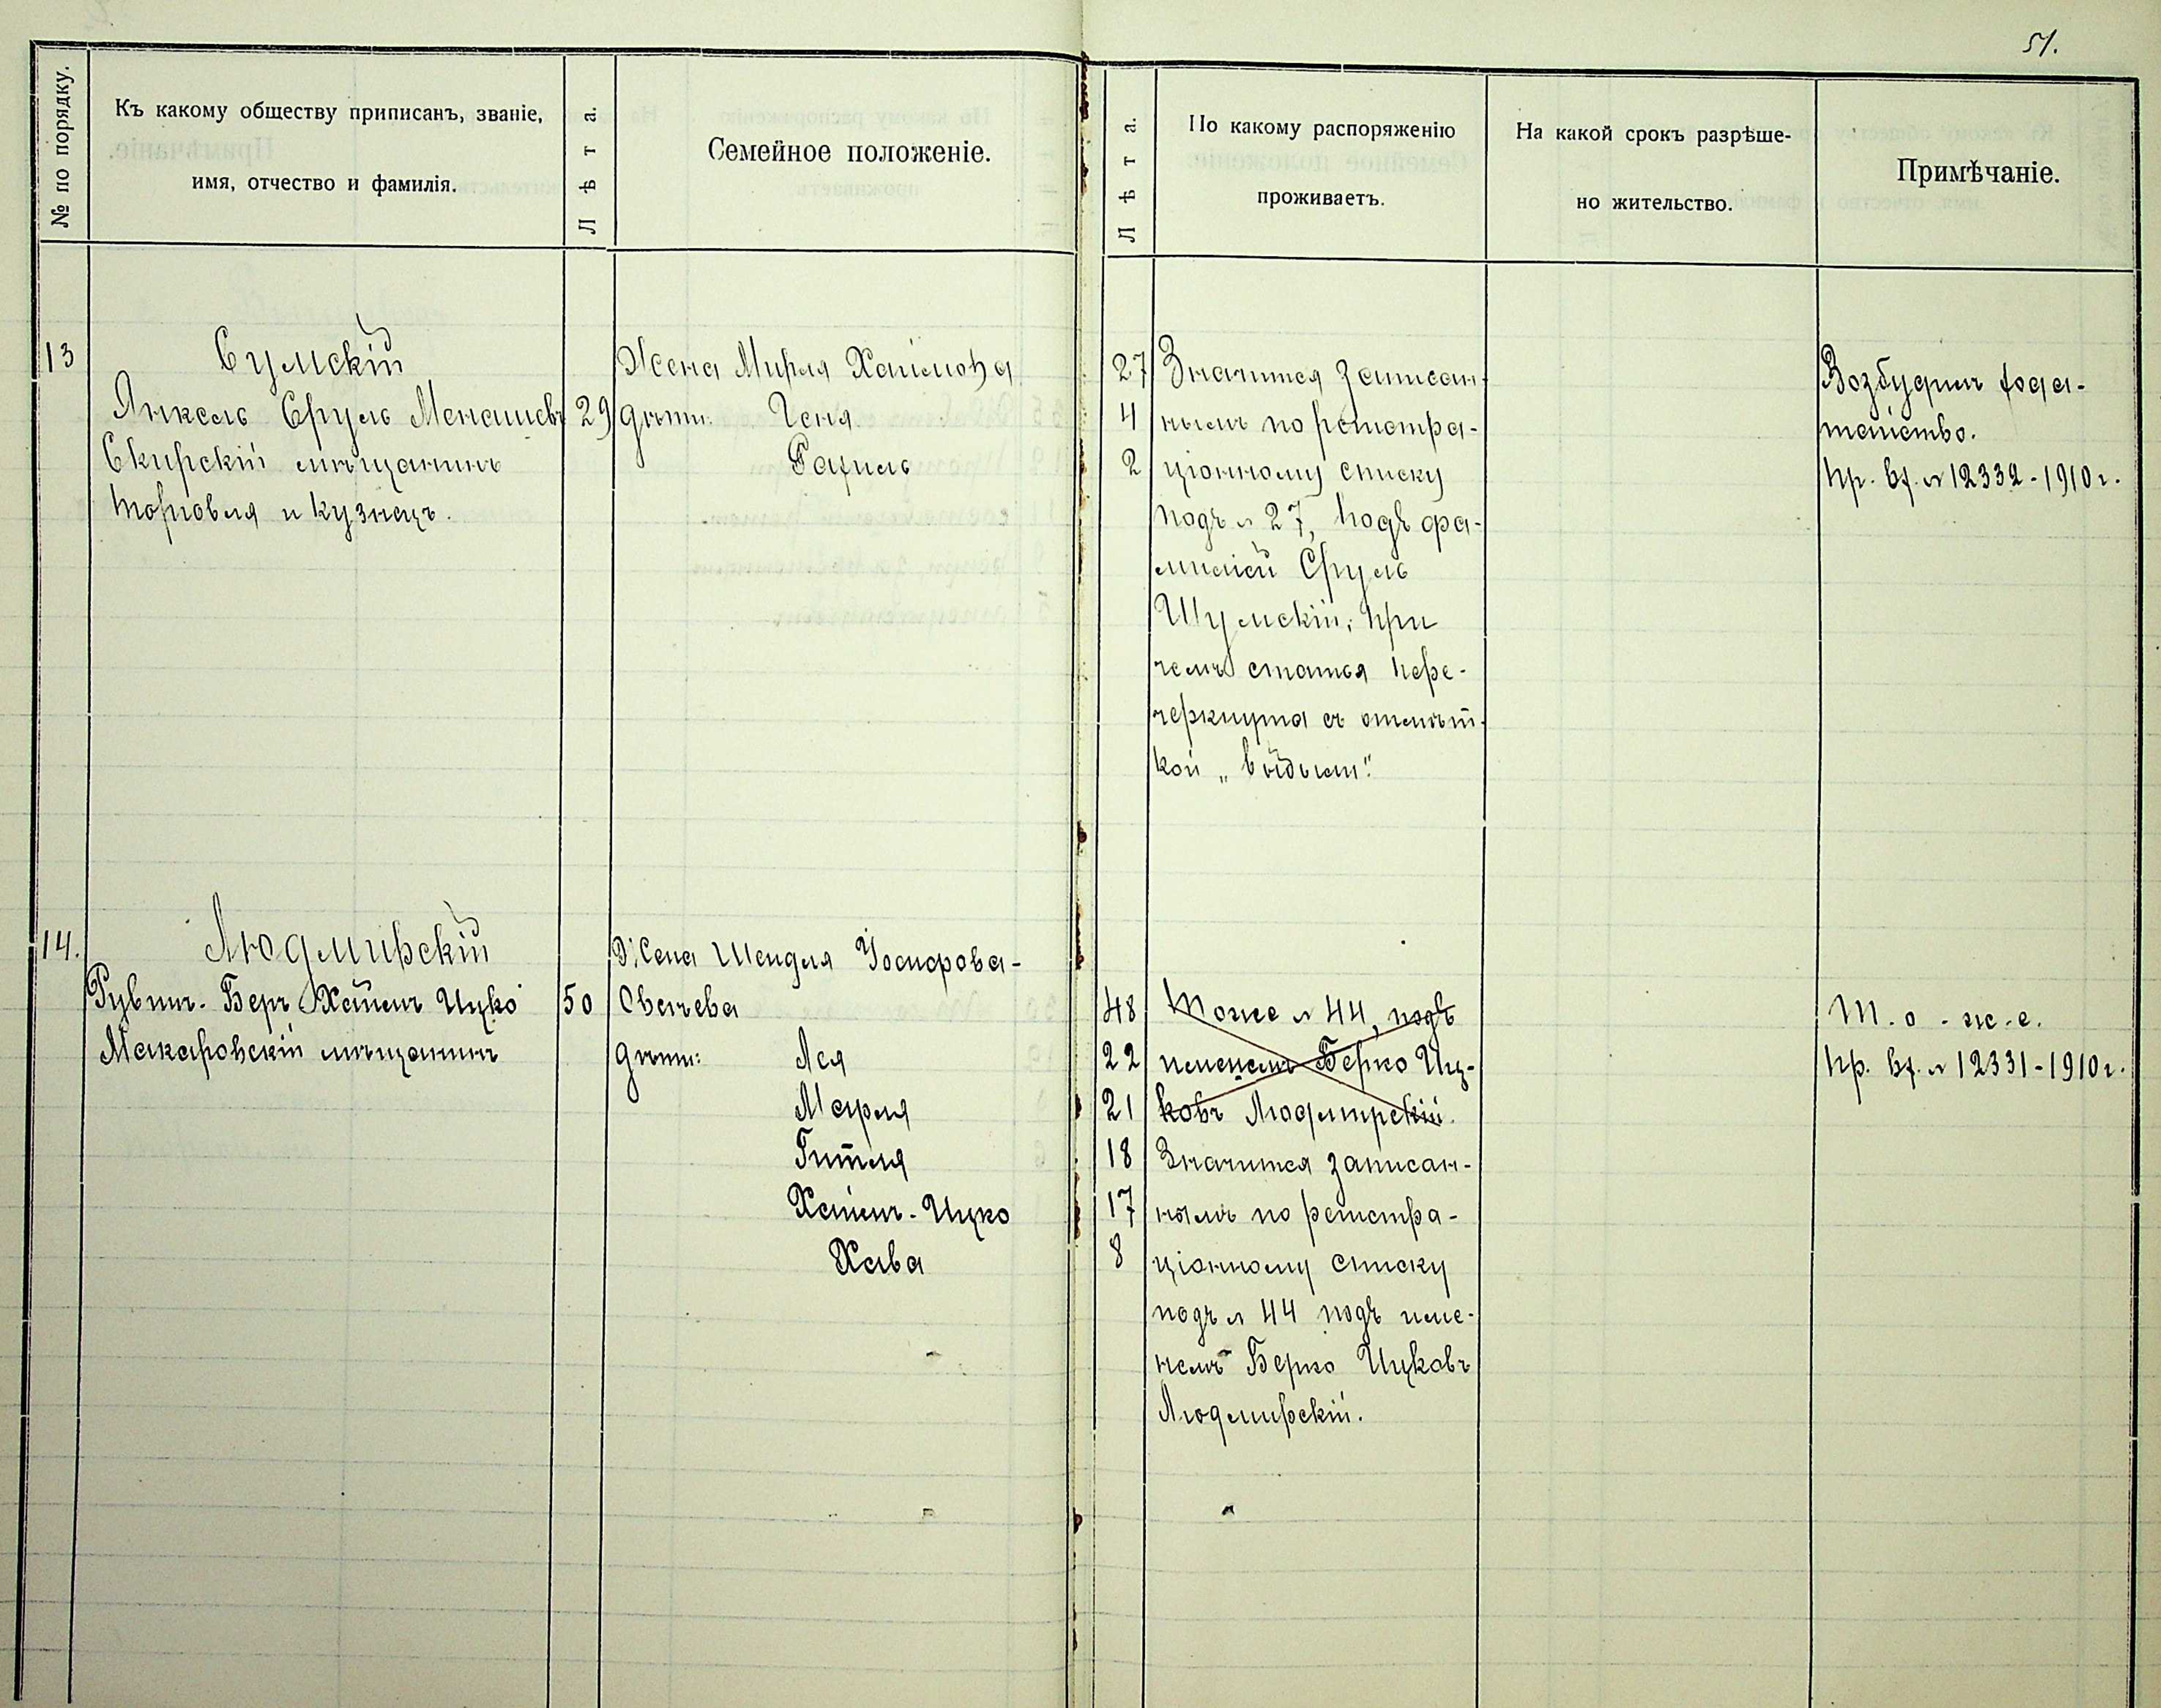 51.
№ по порядку.
Къ какому обществу приписанъ, званіе,
имя, отчество и фамилія.
Лѣта.
Семейное положеніе.
Лѣта.
По какому распоряженію
проживаетъ.
На какой срокъ разрѣше-
но жительство.
Примѣчаніе.
13
Сумскій
Янкель Сруль Менашевъ 29
Скирскій мѣщанинъ
торговля и кузнецъ.
Жена Мирля Хаимова 27
дѣти: Геня 4
Рахиль 2
Значится записан-
нымъ по регистра-
ціонному списку
подъ № 27, подъ фа-
миліей Сруль
Шумскій, при
чемъ статья пере-
черкнута съ отмѣт-
кой „выбылъ".
Возбудилъ хода-
тайство.
пр. вх. № 12332 - 1910 г.
14.
Людмирскій
Рувинъ-Беръ Хаимъ Ицко 50
Макаровскій мѣщанинъ
Жена Шендля Іосифова-
Овшіева 48
дѣти: Лея 22
Маріля 21
Гитля 18
Хаимъ-Ицко 17
Хава 8
Тоже № 44, подъ
именемъ Берко Иц-
ковъ Людмирскій.
Значится записан-
нымъ по регистра-
ціонному списку
подъ № 44 подъ име-
немъ Берко Ицковъ
Людмирскій.
Т.о.-ж.е.
пр. вх. № 12331 - 1910 г.